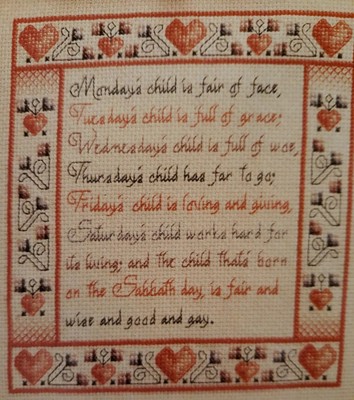 Monday's child is fair of face,
Tuesday's child is full of grace;
Wednesday's child is full of woe,
Thursday's child has far to go;
Friday's child is loving and giving,
Saturday's child works hard for
its living; and the child that's born
on the Sabbath day, is fair and
wise and good and gay.